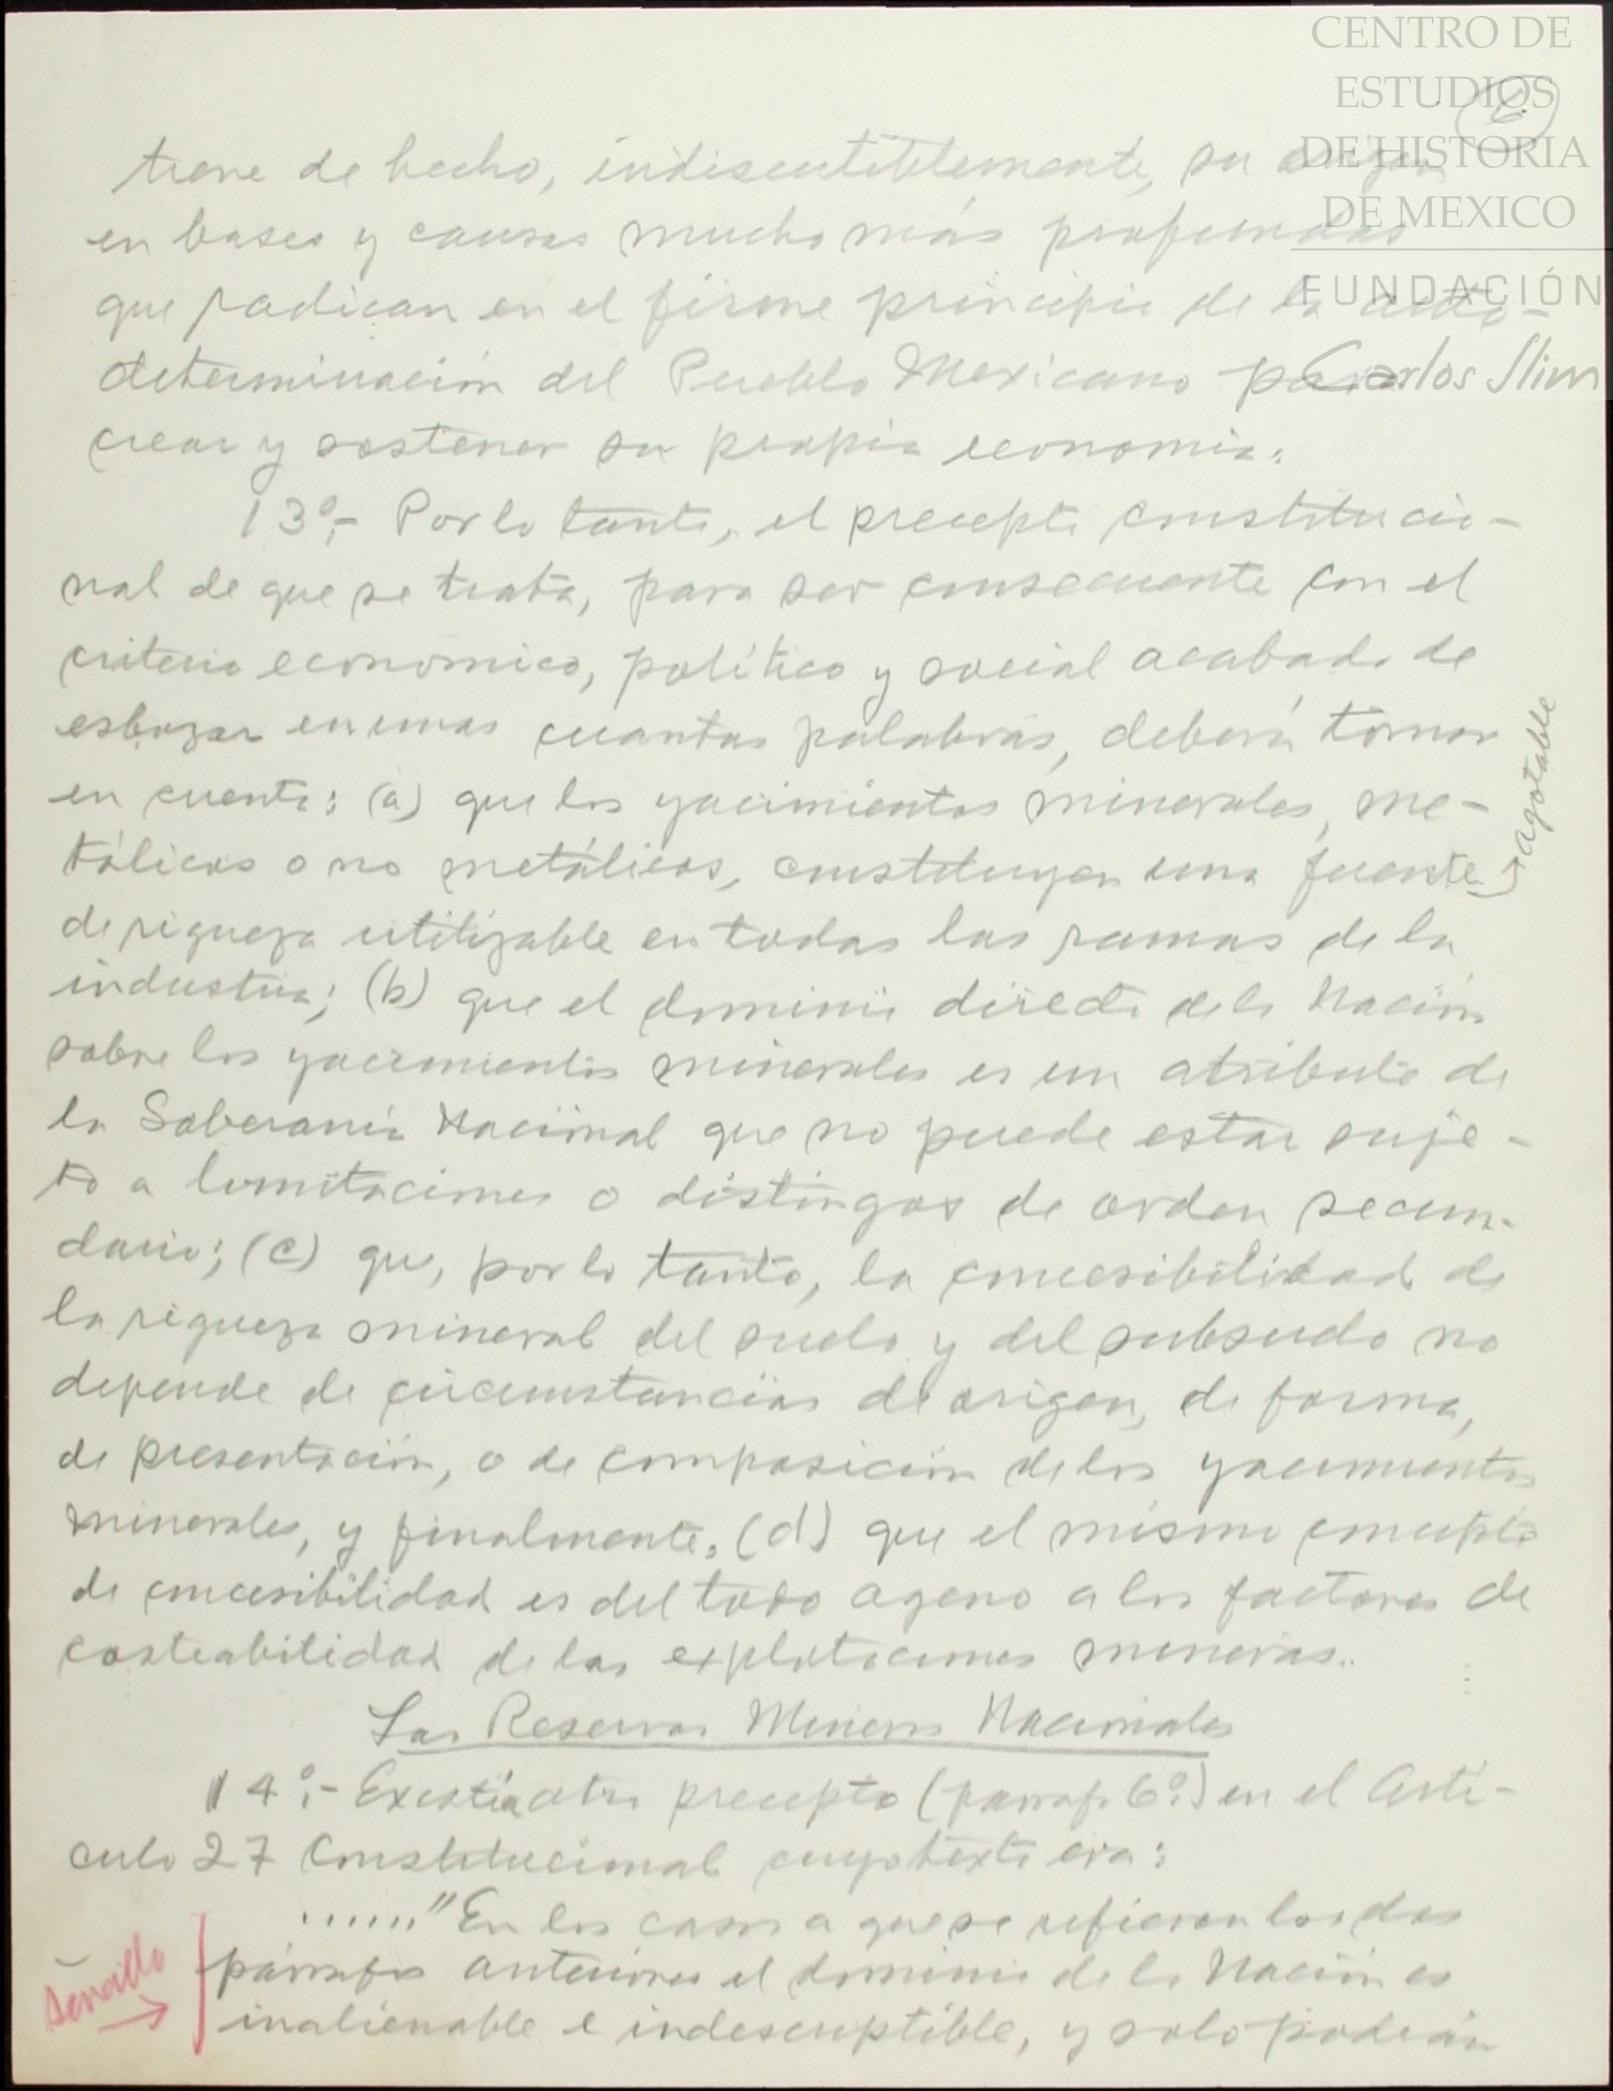 CENTRO DE
ESTUDIOS
DE HISTORIA
DE MEXICO
FUNDACIÓN
Carlos Slim
tiene de hecho, indiscutiblemente, su origen
en bases y causas mucho más profundas
que radican en el firme principio de la auto-
determinación del Pueblo Mexicano para
crear y sostener su propia economía.
13º.- Por lo tanto, el precepto constitucio-
nal de que se trata, para ser consecuente con el
criterio económico, político y social acabado de
esbozar en unas cuantas palabras, deberá tomar
en cuenta: (a) que los yacimientos minerales, me-
tálicos o no metálicos, constituyen una fuente
agotable
de riqueza utilizable en todas las ramas de la
industria; (b) que el dominio directo de la Nación
sobre los yacimientos minerales es un atributo de
la Soberanía Nacional que no puede estar suje-
to a limitaciones o distingos de orden secun-
dario; (c) que, por lo tanto, la concesibilidad de
la riqueza mineral del suelo y del subsuelo no
depende de circunstancias de origen, de forma,
de presentación, o de composición de los yacimientos
minerales, y finalmente, (d) que el mismo concepto
de concesibilidad es del todo ageno a los factores de
costeabilidad de las explotaciones mineras.
Las Reservas Mineras Nacionales
14º.- Existía otro precepto (parraf. 6º.) en el Artí-
culo 27 Constitucional cuyo texto era:
......"En los casos a que se refieren los dos
párrafos anteriores el dominio de la Nación es
inalienable e indescriptible, y solo podrán
sencillo